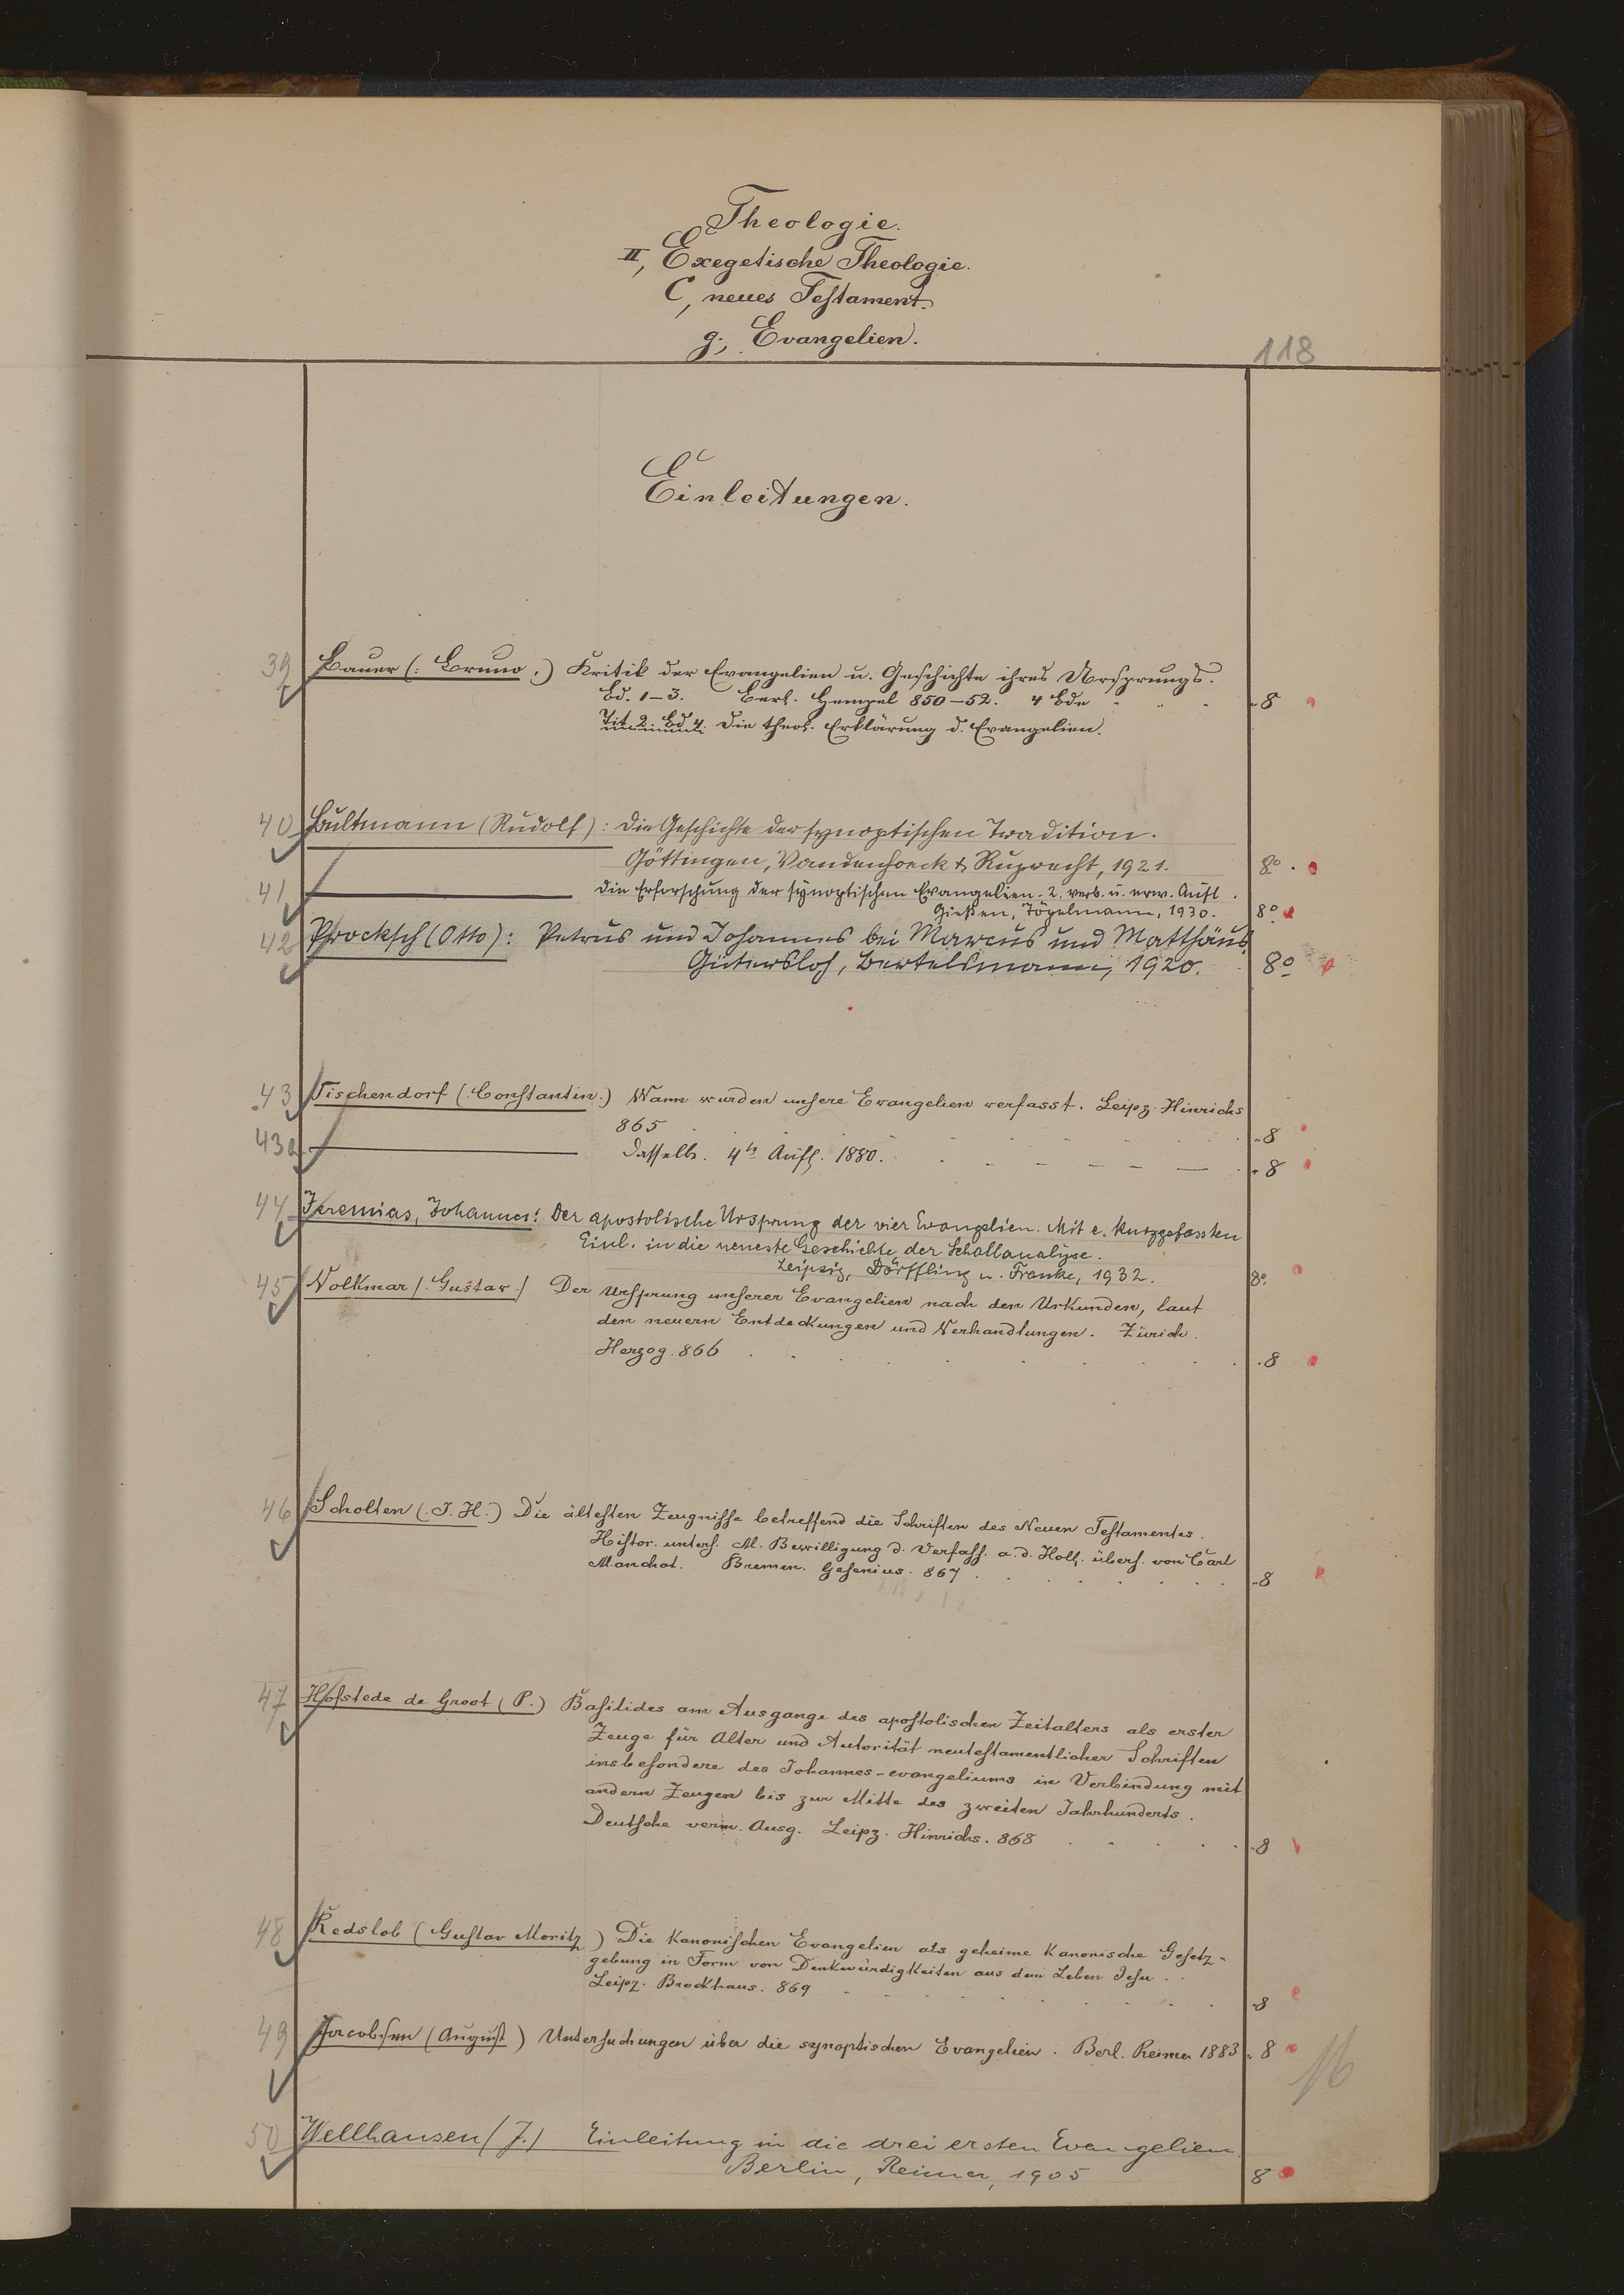 Theologie.
II, Exegetische Theologie.
C, neues Testament.
g., Evangelien.
118
Einleitungen.
39 Bauer (: Bruno :) Kritik der Evangelien u. Geschichte ihres Ursprungs.
Bd. 1–3. Berl. Hempel 850–52. 4 Bde . . . - 8
Tit. 2. Bd 4. Die theol. Erklärung d. Evangelien.
40 Bultmann (Rudolf): Die Geschichte der synoptischen Tradition.
Göttingen, Vandenhoeck & Ruprecht, 1921. 8o .
41 ——— Die Erforschung der synoptischen Evangelien. 2. verb. u. erw. Aufl.
Gießen, Töpelmann, 1930. 8o
42 Procksch (Otto): Petrus und Johannes bei Marcus und Matthäus
Gütersloh, Bertelsmann, 1920. 8o
43 Tischendorf (: Constantin :) Wann wurden unsere Evangelien verfasst. Leipz. Hinrichs
865 - 8
43a ——— Dasselbe. 4te Aufl. 1880. - 8
44 Jeremias, Johannes: Der apostolische Ursprung der vier Evangelien. Mit e. kurzgefassten
Einl. in die neueste Geschichte der Schallanalyse.
Leipzig, Dörffling u. Franke, 1932. 8o.
45 Volkmar (: Gustav :) Der Ursprung unserer Evangelien nach den Urkunden, laut
den neuern Entdeckungen und Verhandlungen. Zürich.
Herzog. 866 . . . . . - 8
46 Scholten (: J. H. :) Die ältesten Zeugnisse betreffend die Schriften des Neuen Testamentes.
Histor. unters. M. Bewilligung d. Verfass. a. d. Holl. übers. von Carl
Manchot. Bremen. Gesenius. 867 . . . - 8
47 Hofstede de Groot (P.) Basilides am Ausgange des apostolischen Zeitalters als erster
Zeuge für Alter und Autorität neutestamentlicher Schriften
insbesondere des Johannes-evangeliums in Verbindung mit
andern Zeugen bis zur Mitte des zweiten Jahrhunderts.
Deutsche verm. Ausg. Leipz. Hinrichs. 868 . . . - 8
48 Redslob (Gustav Moritz) Die Kanonischen Evangelien als geheime Kanonische Gesetz-
gebung in Form von Denkwürdigkeiten aus dem Leben Jesu . .
Leipz. Brockhaus. 869 - 8
49 Jacobsen (August) Untersuchungen über die synoptischen Evangelien. Berl. Reimer 1883 - 8
16
50 Wellhausen (J.) Einleitung in die drei ersten Evangelien
Berlin, Reimer, 1905 8